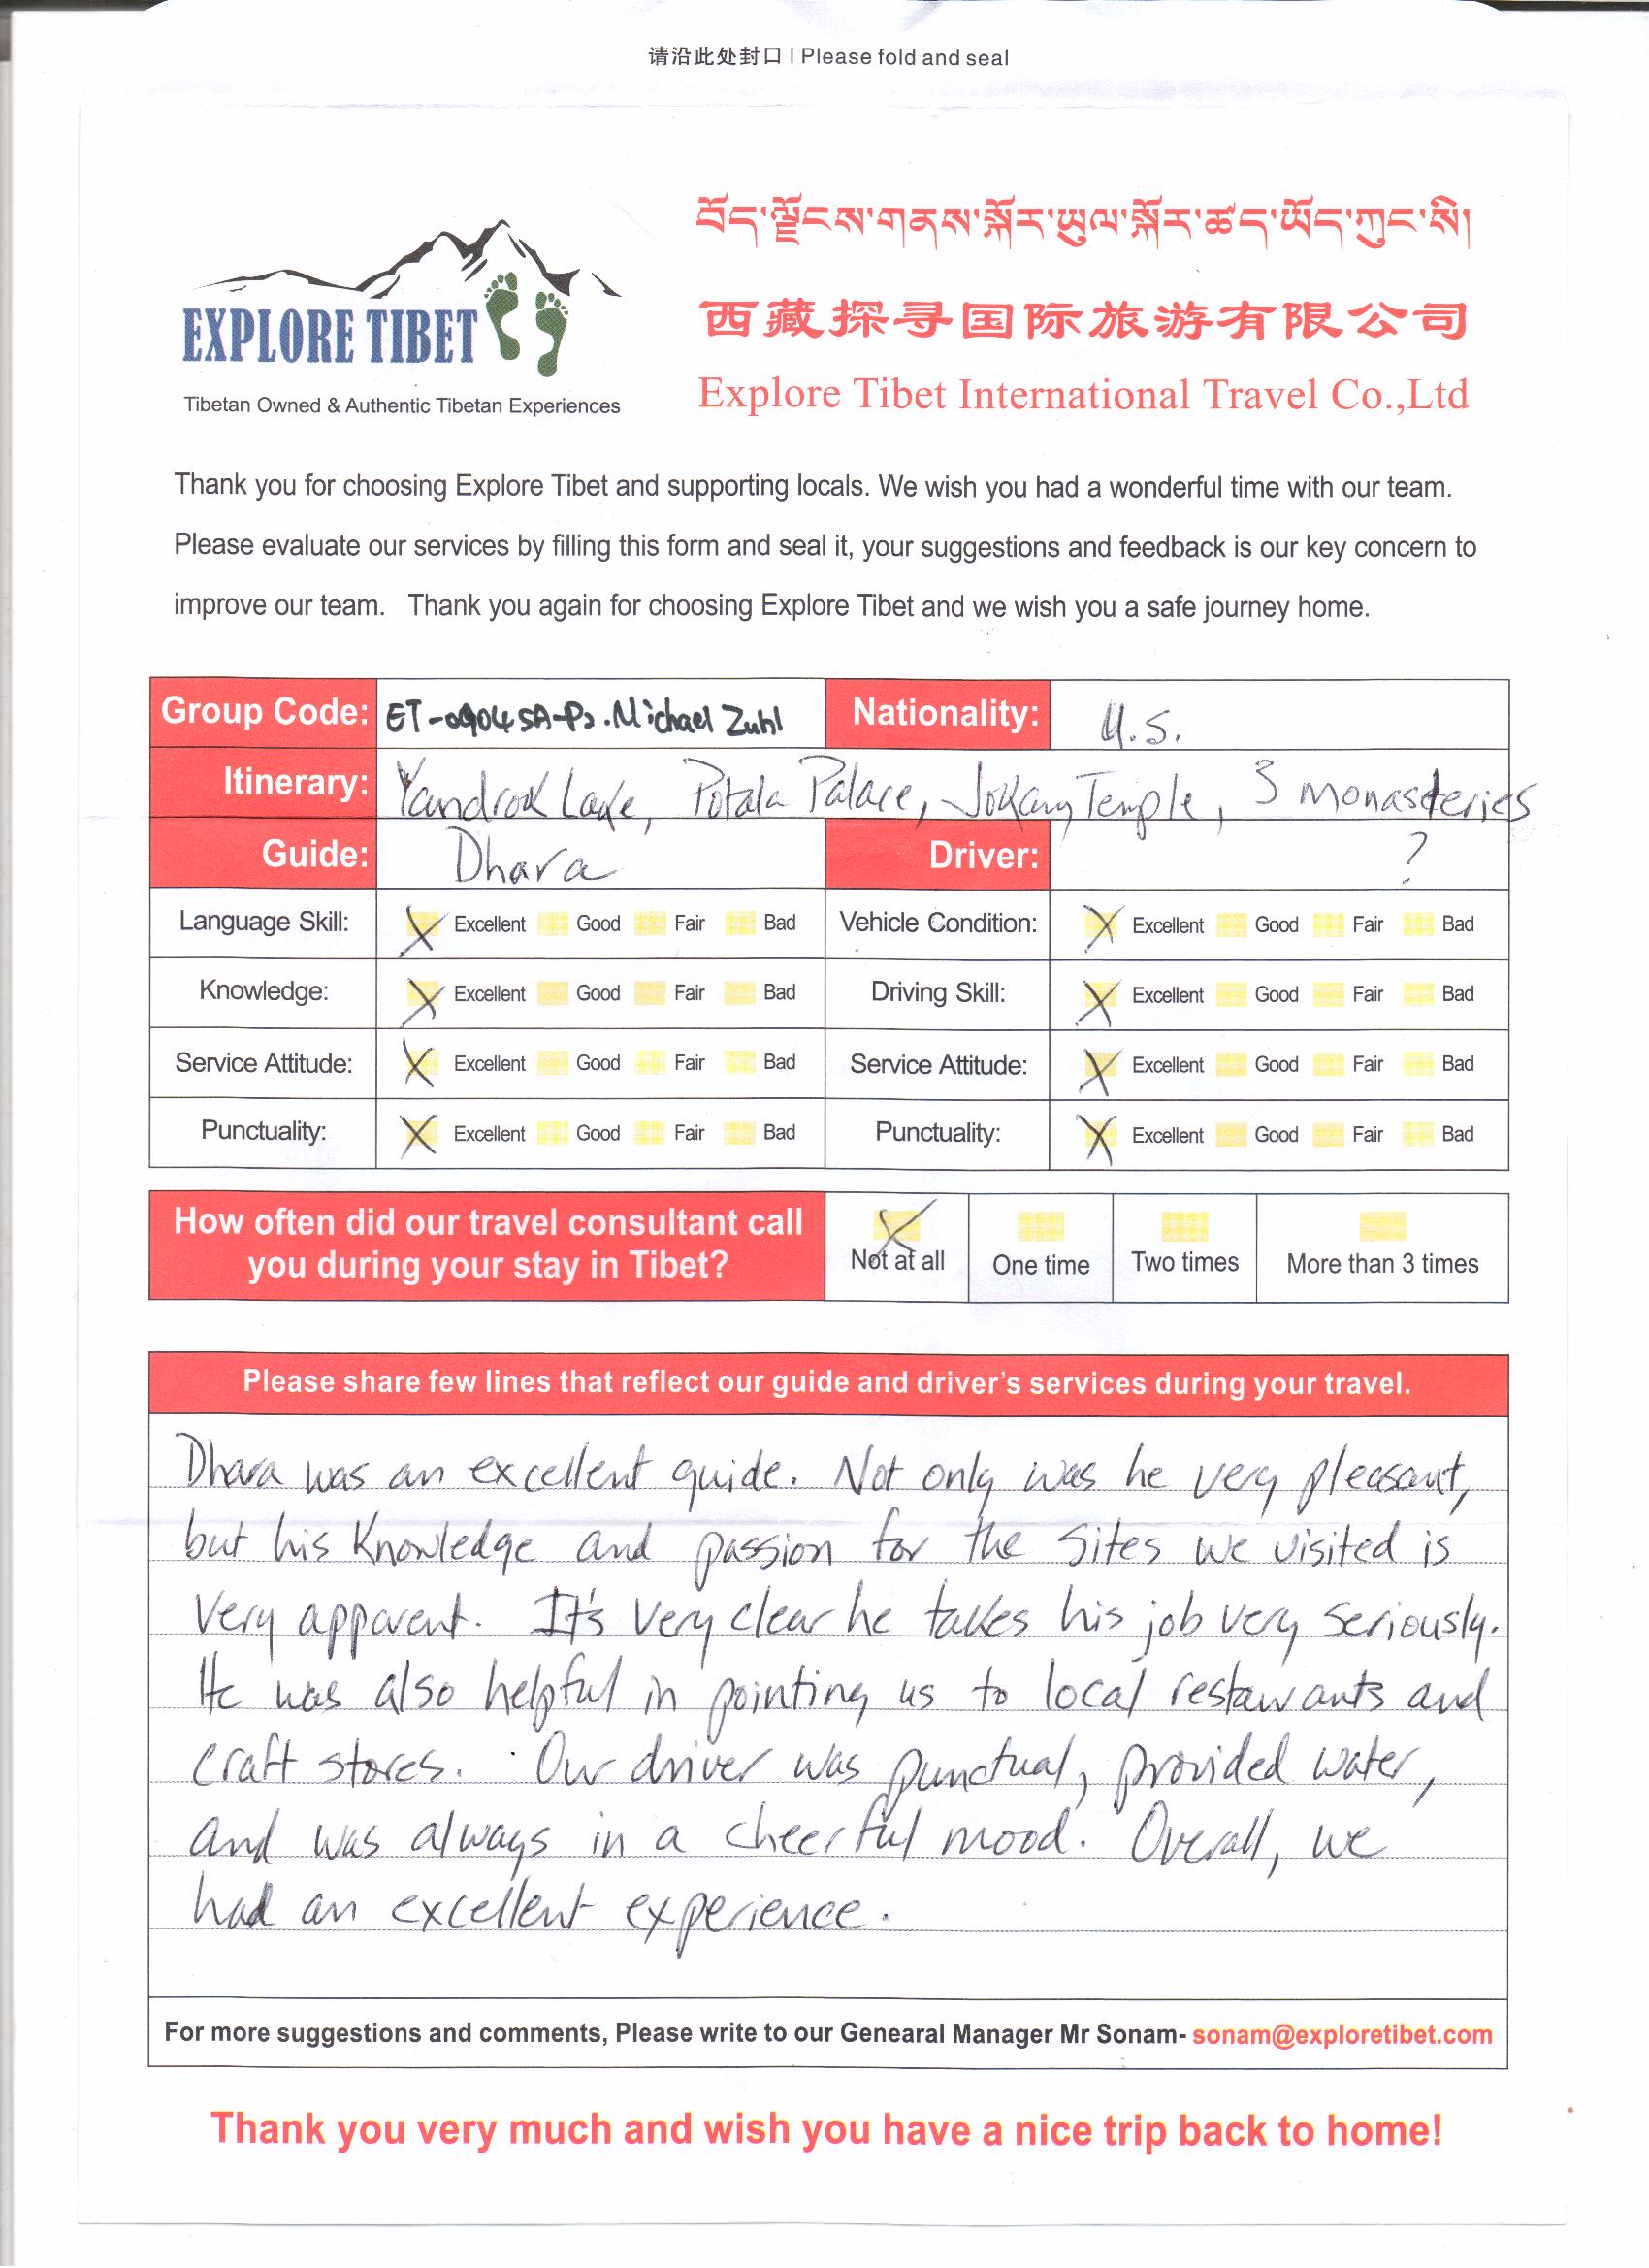 请沿此处封口 | Please fold and seal
བོད་ལྗོངས་གནས་སྐོར་ཡུལ་སྐོར་ཚད་ཡོད་ཀུང་སི།
EXPLORE TIBET
西藏探寻国际旅游有限公司
Tibetan Owned & Authentic Tibetan Experiences
Explore Tibet International Travel Co.,Ltd
Thank you for choosing Explore Tibet and supporting locals. We wish you had a wonderful time with our team.
Please evaluate our services by filling this form and seal it, your suggestions and feedback is our key concern to
improve our team. Thank you again for choosing Explore Tibet and we wish you a safe journey home.
Group Code: ET-0904SA-P2.Michael Zuhl Nationality: U.S.
Itinerary: Yandrok Lake, Potala Palace, Jokang Temple, 3 monasteries
Guide: Dhara Driver: ?
Language Skill: X Excellent Good Fair Bad Vehicle Condition: X Excellent Good Fair Bad
Knowledge: X Excellent Good Fair Bad Driving Skill: X Excellent Good Fair Bad
Service Attitude: X Excellent Good Fair Bad Service Attitude: X Excellent Good Fair Bad
Punctuality: X Excellent Good Fair Bad Punctuality: X Excellent Good Fair Bad
How often did our travel consultant call
you during your stay in Tibet?
X Not at all One time Two times More than 3 times
Please share few lines that reflect our guide and driver's services during your travel.
Dhara was an excellent guide. Not only was he very pleasant,
but his knowledge and passion for the sites we visited is
very apparent. It's very clear he takes his job very seriously.
He was also helpful in pointing us to local restaurants and
craft stores. Our driver was punctual, provided water,
and was always in a cheerful mood. Overall, we
had an excellent experience.
For more suggestions and comments, Please write to our Genearal Manager Mr Sonam- sonam@exploretibet.com
Thank you very much and wish you have a nice trip back to home!